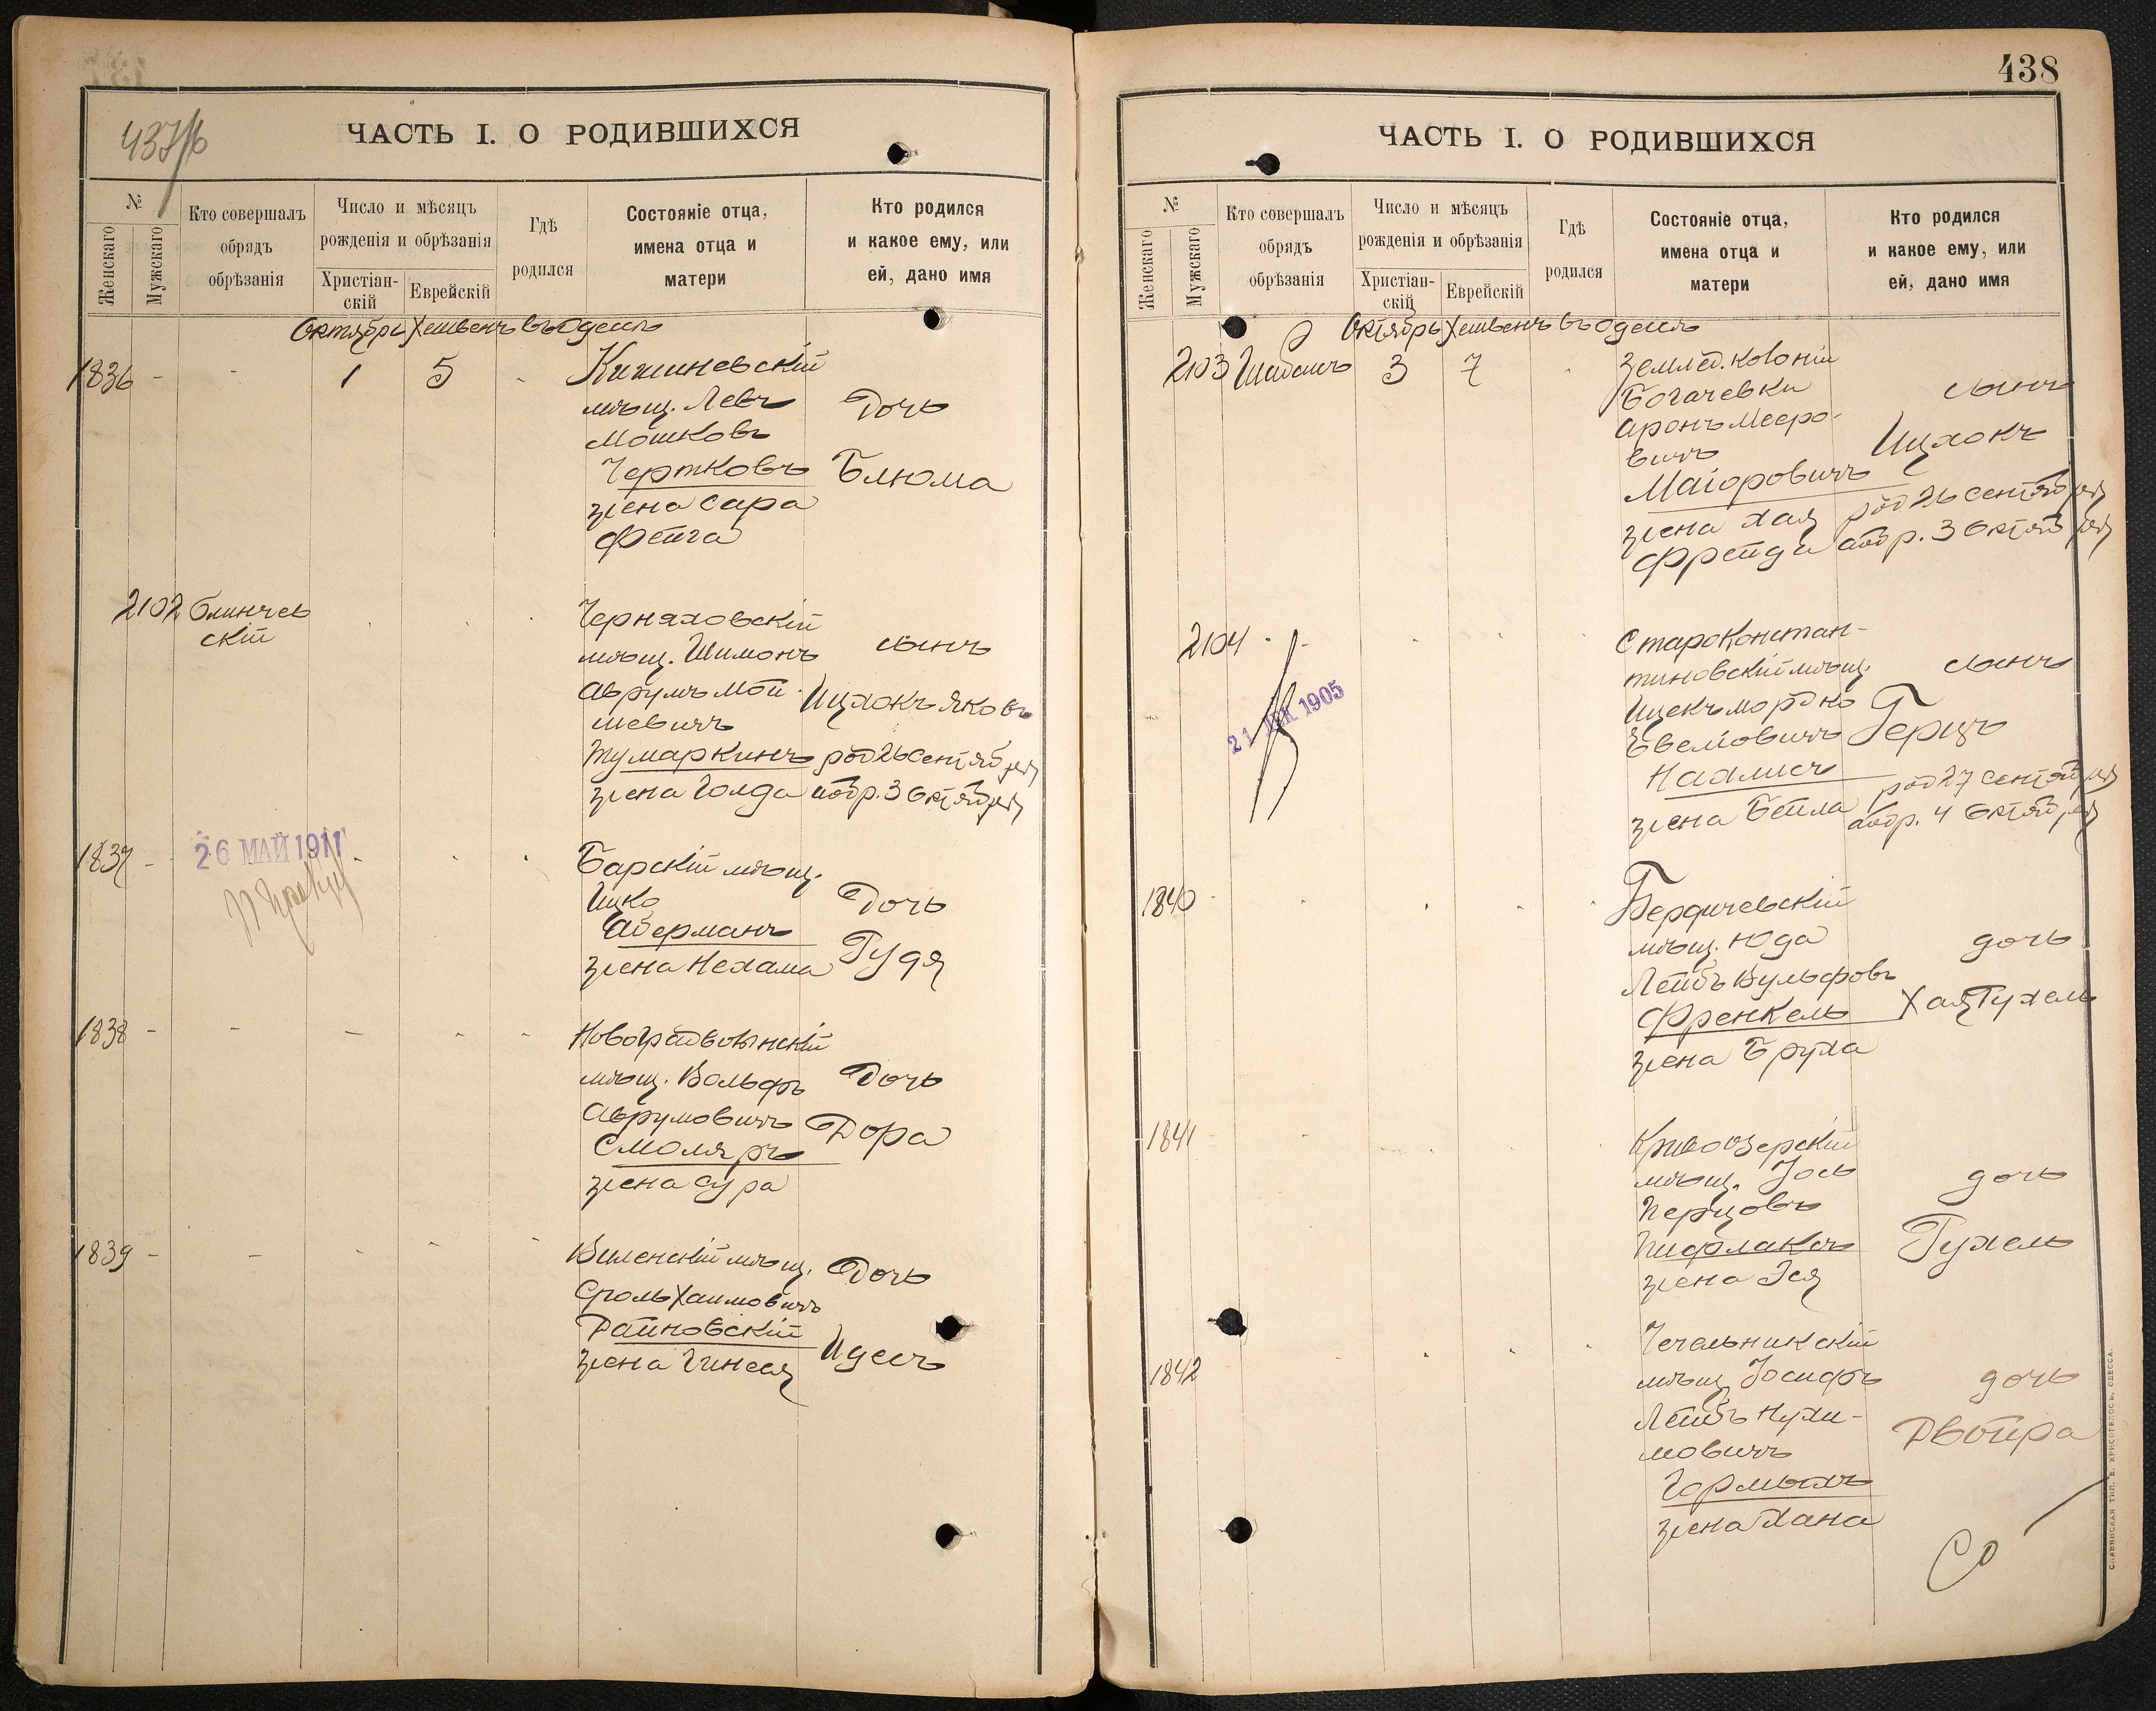 437/б
ЧАСТЬ I. О РОДИВШИХСЯ
№
Женскаго
Мужскаго
Кто совершалъ
обрядъ
обрѣзанія
Число и мѣсяцъ
рожденія и обрѣзанія
Христіан-
скій
Еврейскій
Гдѣ
родился
Состояніе отца,
имена отца и
матери
Кто родился
и какое ему, или
ей, дано имя
Октябрь Хешвенъ въ Одессѣ
1836 - - 1 5 -
Кишиневскій
мѣщ. Левъ
Мошковъ
Чертковъ
жена Сара
Фейга
Дочь
Блюма
2102 Блинчев
скій
Черняховскій
мѣщ. Шимонъ
Аврумъ Мой-
шевичъ
Тумаркинъ
жена Голда
сынъ
Ицхокъ Яковъ
род 26 Сентября
обр. 3 Октября
1837 -
26 МАЙ 1911
Барскій мѣщ.
Ицко
Аберманъ
жена Нехама
Дочь
Гудя
1838 - - - - -
Новоградволынскій
мѣщ. Вольфъ
Аврумовичъ
Смоляръ
жена Сура
Дочь
Дора
1839 - - - - -
Виленскій мѣщ.
Сроль Хаимовичъ
Дайновскій
жена Гинеся
Дочь
Идесъ
438
ЧАСТЬ I. О РОДИВШИХСЯ
№
Женскаго
Мужскаго
Кто совершалъ
обрядъ
обрѣзанія
Число и мѣсяцъ
рожденія и обрѣзанія
Христіан-
скій
Еврейскій
Гдѣ
родился
Состояніе отца,
имена отца и
матери
Кто родился
и какое ему, или
ей, дано имя
Октябрь Хешвенъ въ Одессѣ
2103 3 7
Землед. колоніи
Богачевки
Аронъ Мееро-
вичъ
Маіоровичъ
жена Хая
Фрейда
сынъ
Ицхокъ
род 26 Сентября
обр. 3 Октября
2104 - -
21 1905
Староконстан-
тиновскій мѣщ.
Ицекъ Мордко
Наxлисъ
жена Бейла
сынъ
Герцъ
род 27 Сентября
обр. 4 Октября
1840 -
Бердичевскій
мѣщ. Юда
Лейбъ Вульфовъ
Френкель
жена Бруха
дочь
Хая Рухель
1841
Кривоозерскій
мѣщ. Іось
Перцовъ
жена Эся
дочь
Рухель
1842
Чечельникскій
мѣщ. Іосифъ
Лейбъ Нухи-
мовичъ
жена Хана
дочь
Двойра
СЛАВЯНСКАЯ ТИП. Е. ХРИСОГЕЛОСЪ, ОДЕССА.